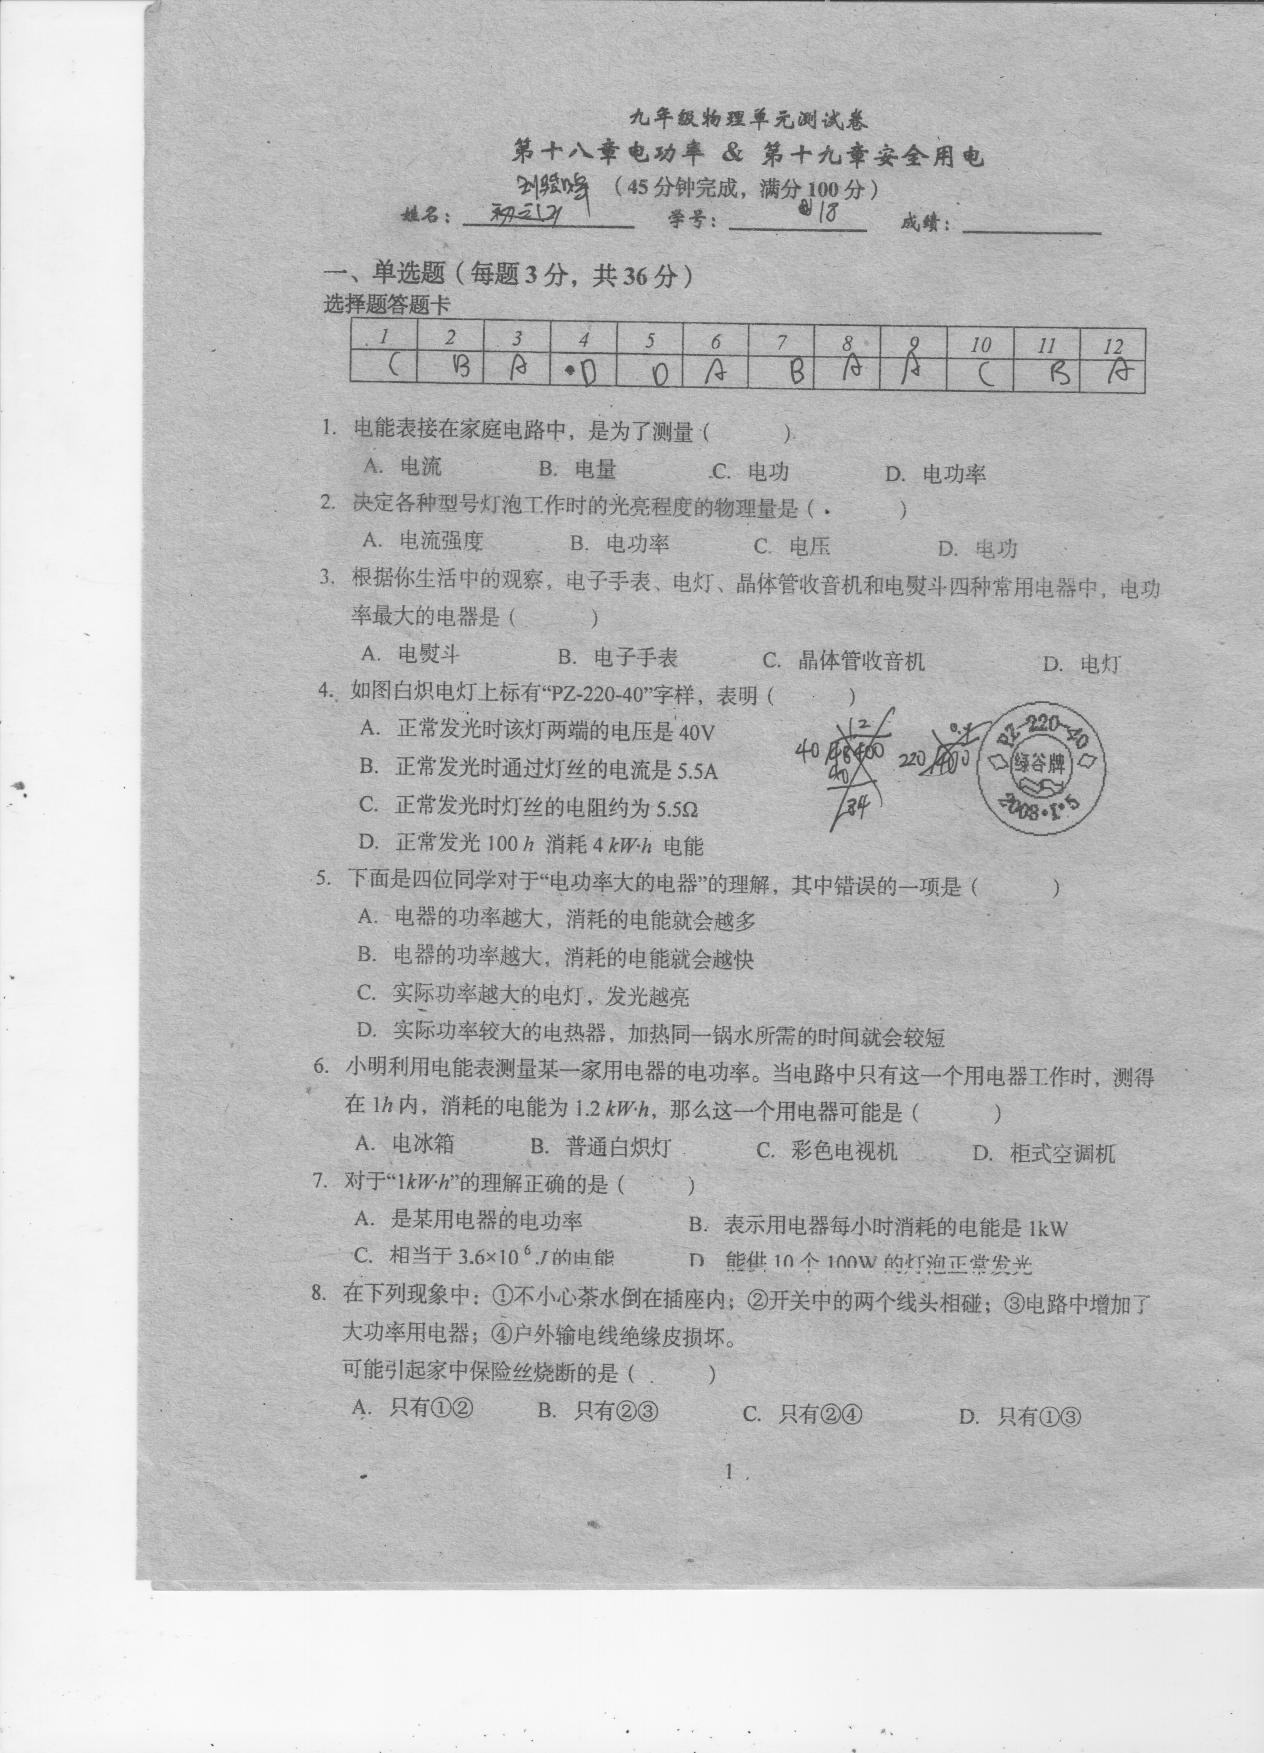 九年级物理单元测试卷
第十八章电功率 & 第十九章安全用电
(45分钟完成，满分100分)
姓名： 初三(2) 学号： 18 成绩：
一、单选题(每题3分，共36分)
选择题答题卡
1 2 3 4 5 6 7 8 9 10 11 12
C B A D D A B A A C B A
1. 电能表接在家庭电路中，是为了测量( )
A. 电流 B. 电量 C. 电功 D. 电功率
2. 决定各种型号灯泡工作时的光亮程度的物理量是( )
A. 电流强度 B. 电功率 C. 电压 D. 电功
3. 根据你生活中的观察，电子手表、电灯、晶体管收音机和电熨斗四种常用电器中，电功
率最大的电器是( )
A. 电熨斗 B. 电子手表 C. 晶体管收音机 D. 电灯
4. 如图白炽电灯上标有“PZ-220-40”字样，表明( )
A. 正常发光时该灯两端的电压是40V
B. 正常发光时通过灯丝的电流是5.5A
C. 正常发光时灯丝的电阻约为5.5Ω
D. 正常发光100h 消耗4kW·h 电能
PZ-220-40
绿谷牌
2008·I·5
5. 下面是四位同学对于“电功率大的电器”的理解，其中错误的一项是( )
A. 电器的功率越大，消耗的电能就会越多
B. 电器的功率越大，消耗的电能就会越快
C. 实际功率越大的电灯，发光越亮
D. 实际功率较大的电热器，加热同一锅水所需的时间就会较短
6. 小明利用电能表测量某一家用电器的电功率。当电路中只有这一个用电器工作时，测得
在1h内，消耗的电能为1.2kW·h，那么这一个用电器可能是( )
A. 电冰箱 B. 普通白炽灯 C. 彩色电视机 D. 柜式空调机
7. 对于“1kW·h”的理解正确的是( )
A. 是某用电器的电功率 B. 表示用电器每小时消耗的电能是1kW
C. 相当于3.6×10⁶J的电能 D. 能供10个100W的灯泡正常发光
8. 在下列现象中：①不小心茶水倒在插座内；②开关中的两个线头相碰；③电路中增加了
大功率用电器；④户外输电线绝缘皮损坏。
可能引起家中保险丝烧断的是( )
A. 只有①② B. 只有②③ C. 只有②④ D. 只有①③
1